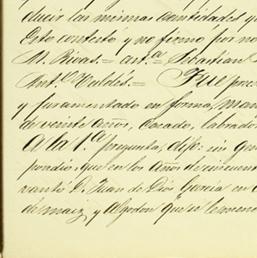 ducir las mismas cantidades q
Esto contesto y no firmo por no
M. Rivas.= ant.ª Sebastian
Ant.º Valdés.= Fue pres
y juramentado en forma, man
de veinte años, casado, labrado
A la 1.ª pregunta, dijo: sin gen
poradio, que en los años de cincuent
vantó D. Juan de Dios Garcia en
de maiz y Algodon que se le